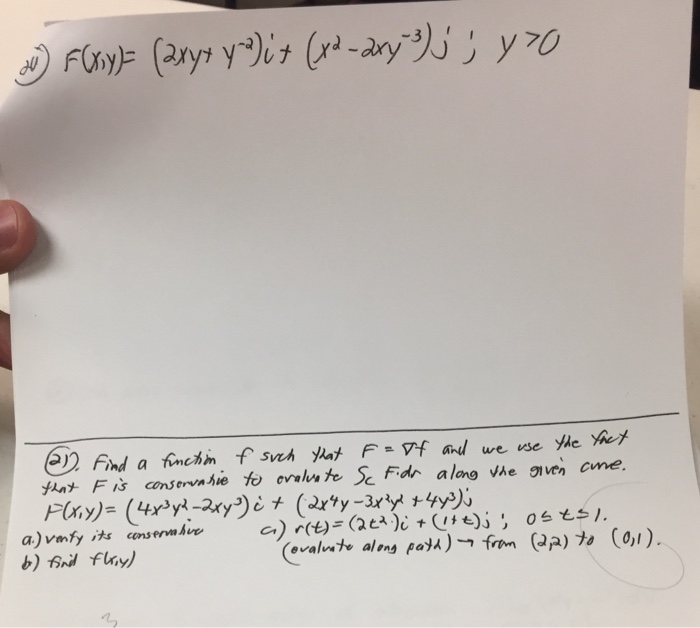 24) F(x,y)= (2xy+ y⁻²)i + (x² - 2xy⁻³)j ; y>0
21). Find a function f such that F = ∇f and we use the fact
that F is conservative to evaluate ∫c F·dr along the given curve.
F(x,y)= (4x³y²-2xy³)i + (2x⁴y-3x²y²+4y³)j
a.) verify its conservative
c.) r(t)=(2t²)i + (1+t)j ; 0≤t≤1.
b) find f(x,y)
(evaluate along path) → from (2,2) to (0,1).